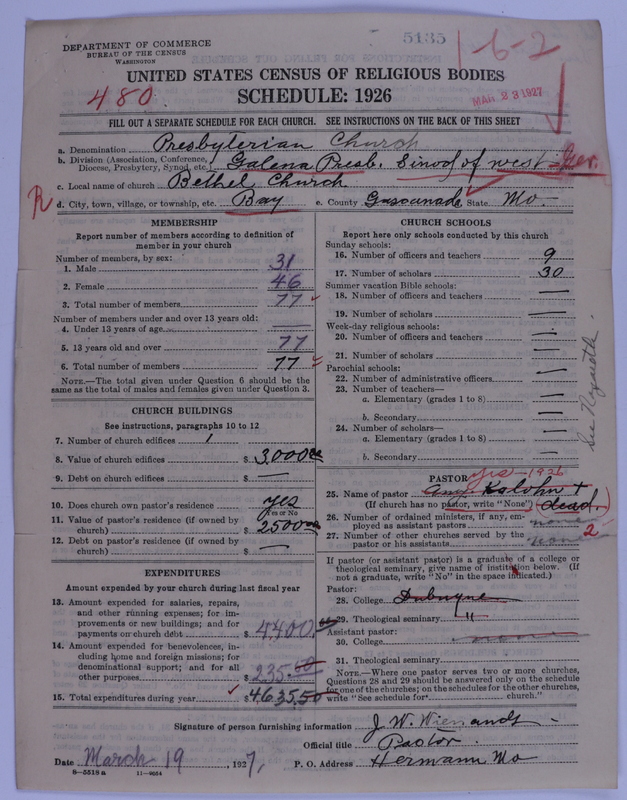 5135
6-2
DEPARTMENT OF COMMERCE
BUREAU OF THE CENSUS
WASHINGTON
UNITED STATES CENSUS OF RELIGIOUS BODIES
480
SCHEDULE: 1926
MAR 23 1927
FILL OUT A SEPARATE SCHEDULE FOR EACH CHURCH. SEE INSTRUCTIONS ON THE BACK OF THIS SHEET
a. Denomination Presbyterian Church
b. Division (Association, Conference, Diocese, Presbytery, Synod, etc.) Galena Presb. Sinod of west Ger.
c. Local name of church Bethel Church
R
d. City, town, village, or township, etc. Bay e. County Gasconade State Mo.
MEMBERSHIP
Report number of members according to definition of
member in your church
Number of members, by sex:
1. Male 31
2. Female 46
3. Total number of members 77
Number of members under and over 13 years old:
4. Under 13 years of age —
5. 13 years old and over 77
6. Total number of members 77
NOTE.—The total given under Question 6 should be the
same as the total of males and females given under Question 3.
CHURCH BUILDINGS
See instructions, paragraphs 10 to 12
7. Number of church edifices 1
8. Value of church edifices $ 3,000 00
9. Debt on church edifices $ —
10. Does church own pastor's residence? yes
Yes or No
11. Value of pastor's residence (if owned by
church) $ 2500 00
12. Debt on pastor's residence (if owned by
church) $ —
EXPENDITURES
Amount expended by your church during last fiscal year
13. Amount expended for salaries, repairs,
and other running expenses; for im-
provements or new buildings; and for
payments on church debt $ 4400.00
14. Amount expended for benevolences, in-
cluding home and foreign missions; for
denominational support; and for all
other purposes $ 235.50
15. Total expenditures during year $ 4635.50
CHURCH SCHOOLS
Report here only schools conducted by this church
Sunday schools:
16. Number of officers and teachers 9
17. Number of scholars 30
Summer vacation Bible schools:
18. Number of officers and teachers —
19. Number of scholars —
Week-day religious schools:
20. Number of officers and teachers —
21. Number of scholars —
Parochial schools:
22. Number of administrative officers —
23. Number of teachers—
a. Elementary (grades 1 to 8) —
b. Secondary —
24. Number of scholars—
a. Elementary (grades 1 to 8) —
b. Secondary —
PASTOR yes - 1926
25. Name of pastor Aug. Kalohn +
(If church has no pastor, write "None") dead.
26. Number of ordained ministers, if any, em-
ployed as assistant pastors none
27. Number of other churches served by the
pastor or his assistants none 2
If pastor (or assistant pastor) is a graduate of a college or
theological seminary, give name of institution below. (If
not a graduate, write "No" in the space indicated.)
Pastor:
28. College Dubuque
29. Theological seminary "
Assistant pastor:
30. College none
31. Theological seminary
NOTE.—Where one pastor serves two or more churches,
Questions 28 and 29 should be answered only on the schedule
for one of the churches; on the schedules for the other churches,
write "See schedule for church."
Signature of person furnishing information J. W. Wienandt
Official title Pastor
Date March 19, 1927, P. O. Address Hermann Mo
8—5518 a 11—9664